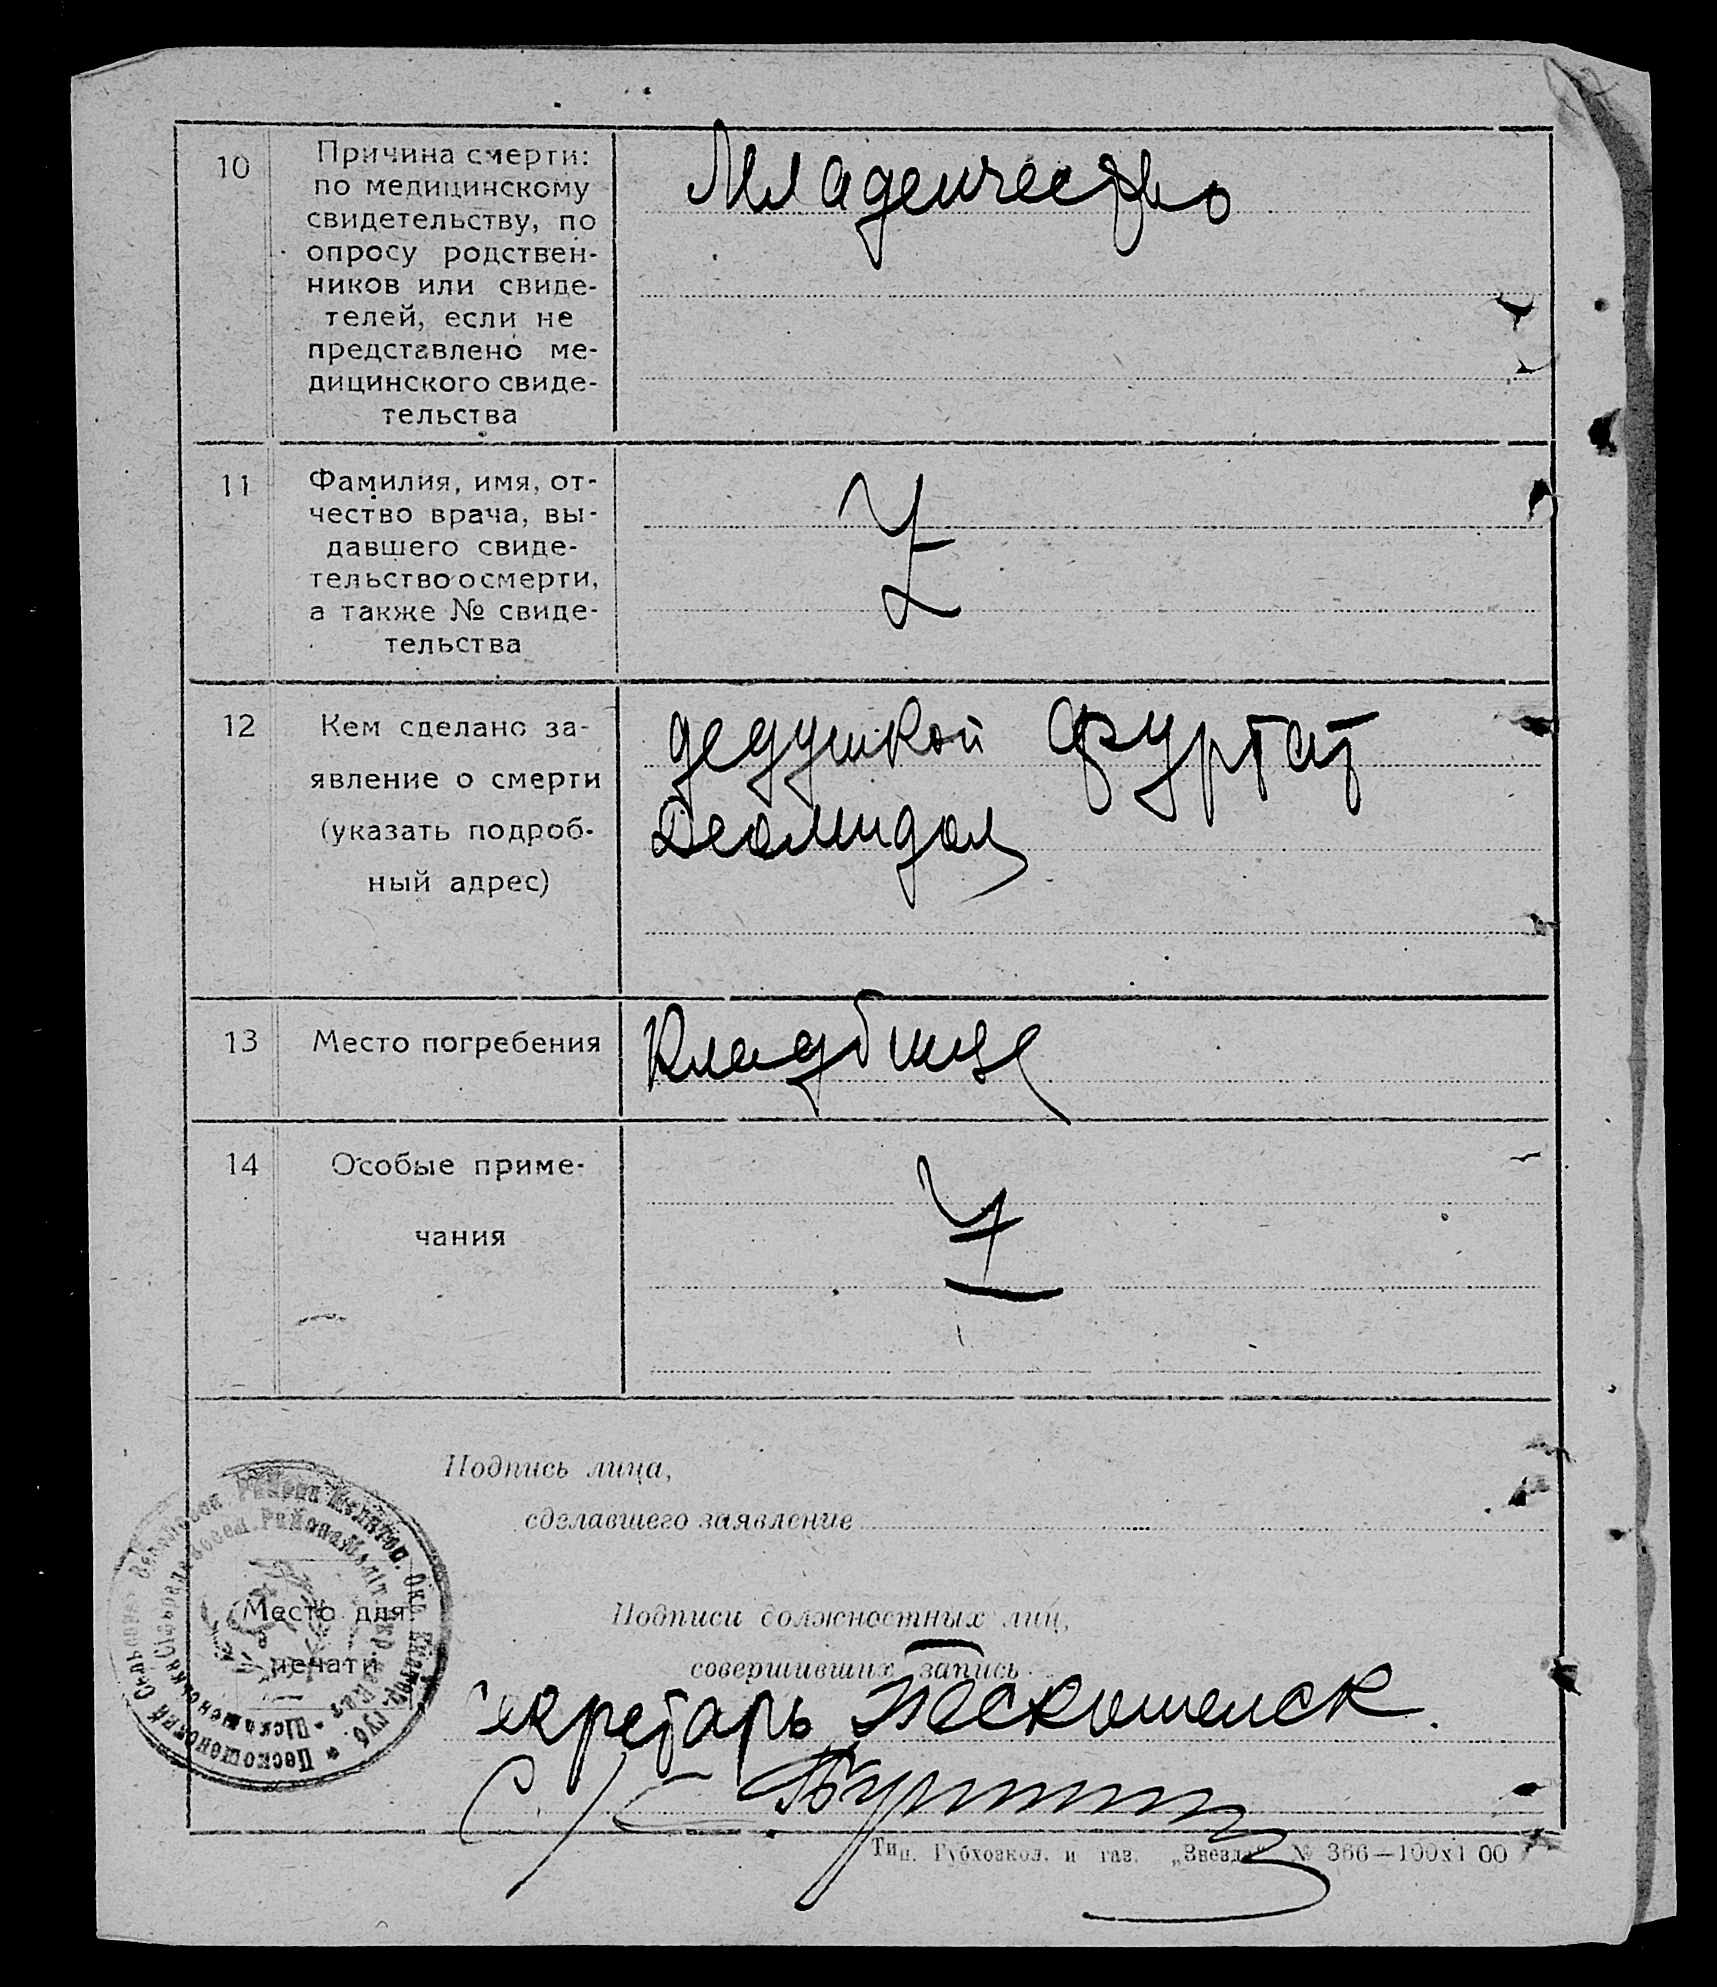 10
Причина смерти:
по медицинскому
свидетельству, по
опросу родствен-
ников или свиде-
телей, если не
представлено ме-
дицинского свиде-
тельства
Младенчество
11
Фамилия, имя, от-
чество врача, вы-
давшего свиде-
тельство о смерти,
а также № свиде-
тельства
12
Кем сделано за-
явление о смерти
(указать подроб-
ный адрес)
дедушкой Фуртат
Деомидом
13
Место погребения
Кладбище
14
Особые приме-
чания
Подпись лица,
сделавшего заявление
Место для
печати
Подписи должностных лиц,
совершивших запись
секретарь
Тип. Губхозкол. и газ. „Звезда“ № 366—100х1 00